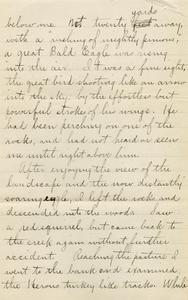 yards
below me. Not twenty feet away,
with a "rushing of mighty pinions,"
a great Bald Eagle was rising
into the air. It was a fine sight,
the great bird shooting like an arrow
into the sky, by the effortless but
powerful strokes of his wings. He
had been perching on one of the
rocks, and had not heard or seen
me until right above him.
After enjoying the view of the
landscape and the now distantly
soaring eagle, I left the rocks and
descended into the woods. Saw
a red squirrel, but came back to
the creek again without further
accident. Reaching the pasture I
went to the bank and examined
the Herons turkey like tracks. While